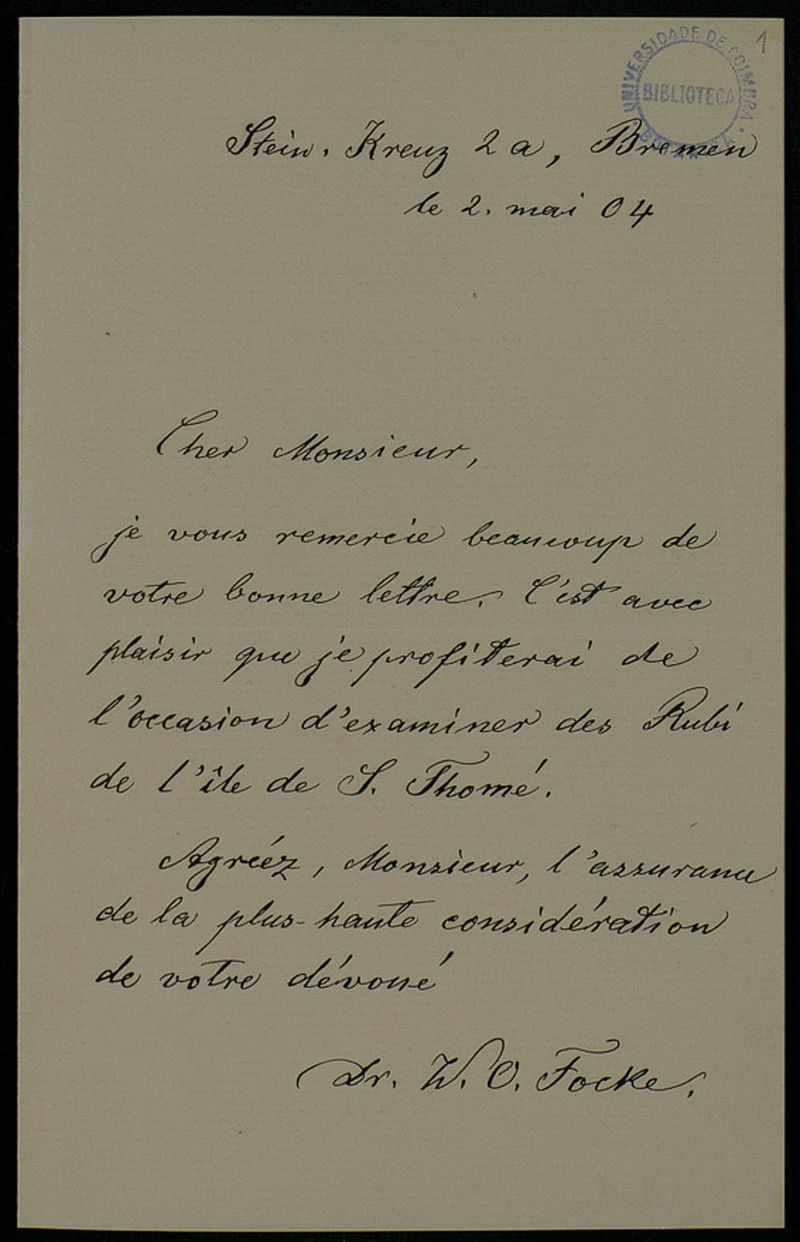 1
UNIVERSIDADE DE COIMBRA
BIBLIOTECA
Stein. Kreuz 2a, Bremen
le 2. mai 04
Cher Monsieur,
je vous remercie beaucoup de
votre bonne lettre. C'est avec
plaisir que je profiterai de
l'occasion d'examiner des Rubi
de l'île de S. Thomé.
Agréez, Monsieur, l'assurance
de la plus-haute considération
de votre dévoué
Dr. W. O. Focke.